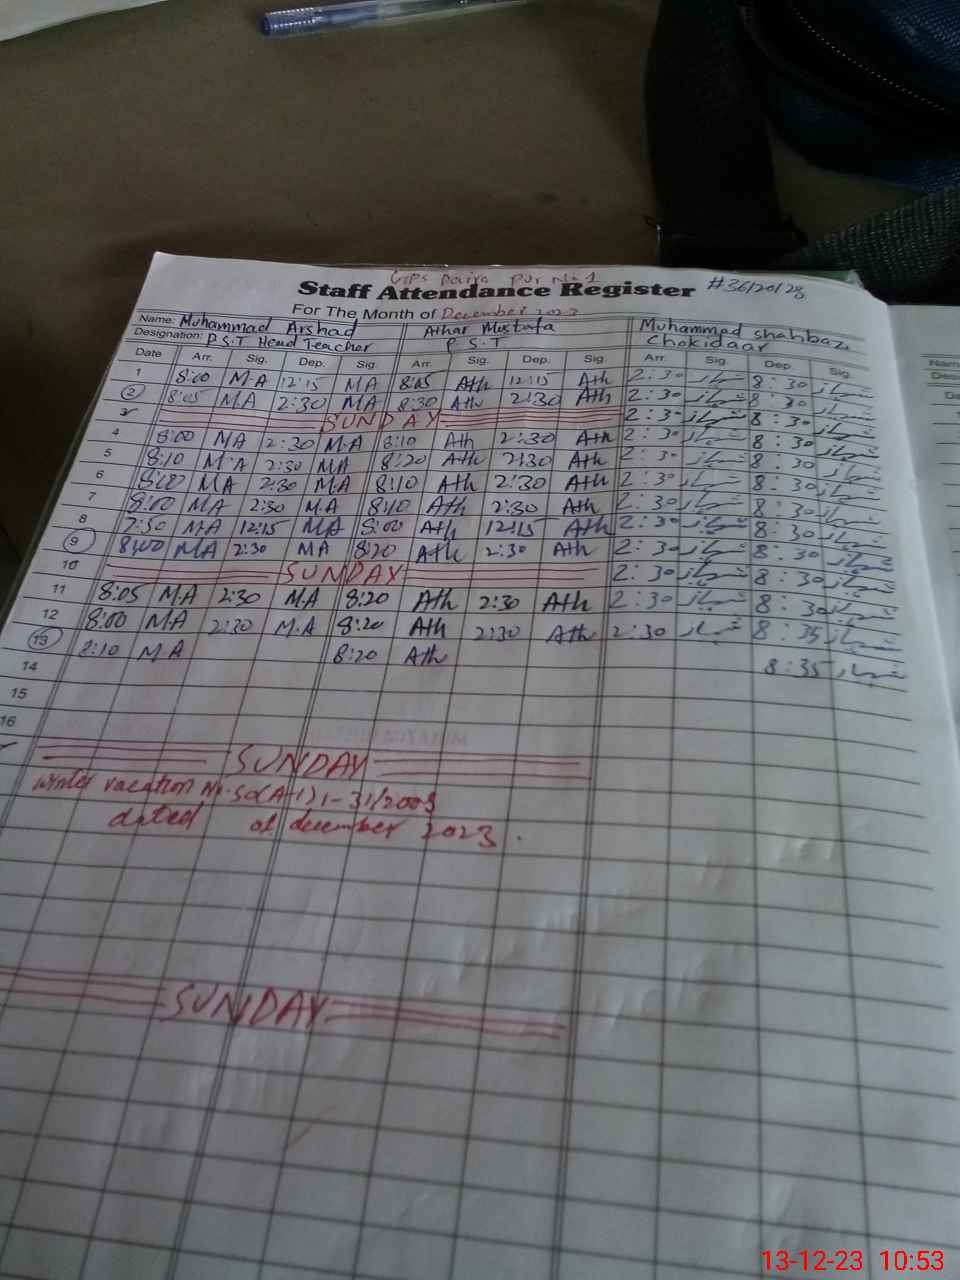 GPS Dariya pur No 1
Staff Attendance Register #36120128
For The Month of December 2023
Name: Muhammad Arshad Athar Mustafa Muhammad shahbaz
Designation: P.S.T Head Teacher P.S.T Chokidaar
Date Arr. Sig. Dep. Sig. Arr. Sig. Dep. Sig. Arr. Sig. Dep. Sig.
1 8:00 MA 12:15 MA 8:05 Ath 12:15 Ath 2:30 شہباز 8:30 شہباز
2 8:05 MA 2:30 MA 8:30 Ath 2:30 Ath 2:30 شہباز 8:30 شہباز
SUNDAY 2:30 شہباز 8:30 شہباز
4 8:00 MA 2:30 MA 8:10 Ath 2:30 Ath 2:30 شہباز 8:30 شہباز
5 8:10 MA 2:30 MA 8:20 Ath 2:30 Ath 2:30 شہباز 8:30 شہباز
6 8:00 MA 2:30 MA 8:10 Ath 2:30 Ath 2:30 شہباز 8:30 شہباز
7 8:00 MA 2:30 MA 8:10 Ath 2:30 Ath 2:30 شہباز 8:30 شہباز
8 7:50 MA 12:15 MA 8:00 Ath 12:15 Ath 2:30 شہباز 8:30 شہباز
9 8:00 MA 2:30 MA 8:20 Ath 2:30 Ath 2:30 شہباز 8:30 شہباز
10 SUNDAY 2:30 شہباز 8:30 شہباز
11 8:05 MA 2:30 MA 8:20 Ath 2:30 Ath 2:30 شہباز 8:30 شہباز
12 8:00 MA 2:30 M.A 8:20 Ath 2:30 Ath 2:30 شہباز 8:35 شہباز
13 8:10 MA 8:20 Ath 8:35 شہباز
14
15
16
SUNDAY
winter vacation No. SO(A-1) 1-31/2008
dated of december 2023.
SUNDAY
13-12-23 10:53